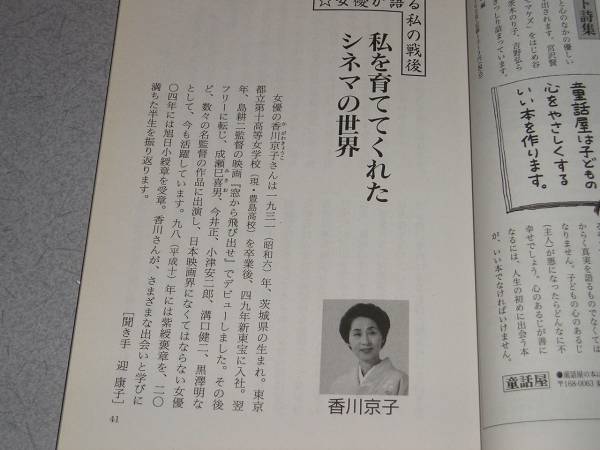 ☆女優が語る私の戦後
私を育ててくれた
シネマの世界
女優の香川京子さんは一九三一（昭和六）年、茨城県の生まれ。東京
都立第十高等女学校（現・豊島高校）を卒業後、四九年新東宝に入社。翌
年、島耕二監督の映画『窓から飛び出せ』でデビューしました。その後
フリーに転じ、成瀬巳喜男、今井正、小津安二郎、溝口健二、黒澤明な
ど、数々の名監督の作品に出演し、日本映画界になくてはならない女優
として、今も活躍しています。九八（平成十）年には紫綬褒章を、二〇
〇四年には旭日小綬章を受章。香川さんが、さまざまな出会いと学びに
満ちた半生を振り返ります。
［聞き手　迎　康子］
香川京子
41
ト詩集
童話屋は子どもの
心をやさしくする
いい本を作ります。
からく真実を語るものでなくては
なりません。子どもの心のあるじ
（主人）が悪になったらどんなに不
幸せでしょう。心のあるじが善に
なるには、人生の初めに出会う本
が、いい本でなければいけません。
童話屋
●童話屋の本は
〒168-0063